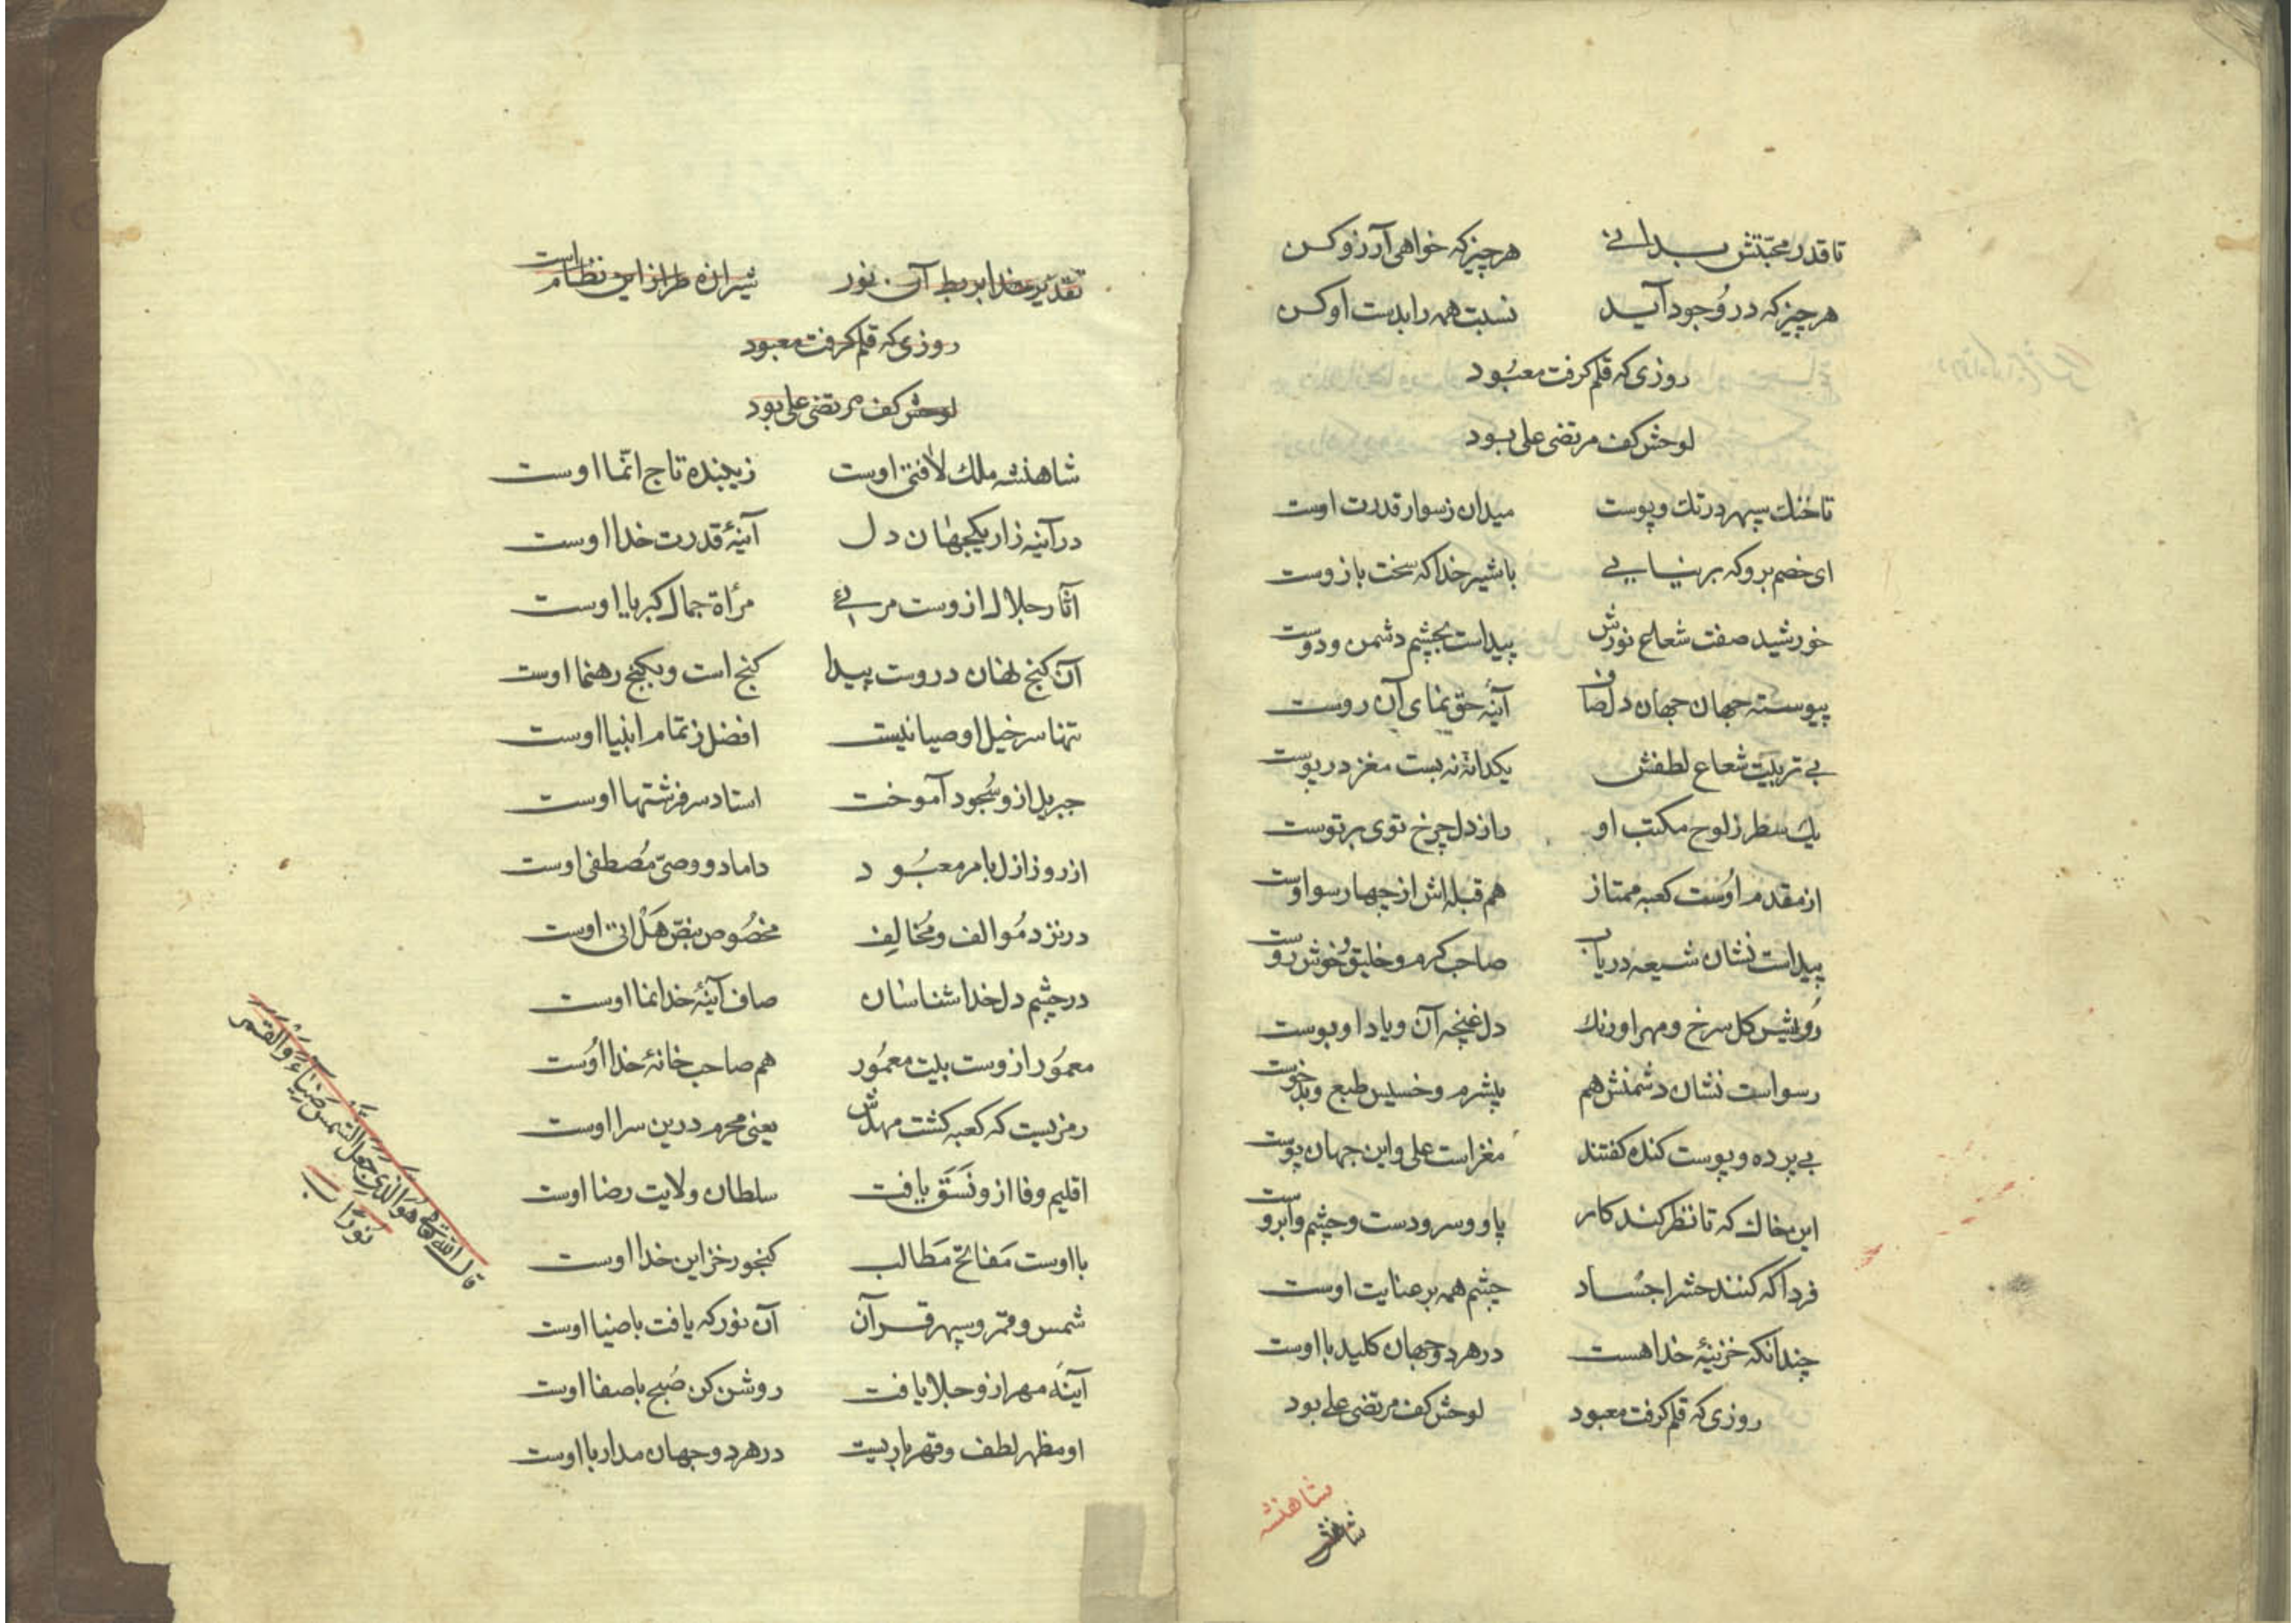 تا قدر محبّتش بدانی هر چیز که خواهی آرزو کن
هر چیز که در وُجود آید نسبت همه را بدست او کن
روزی که قلم کرفت معبُود
لوحش کف مرتضی علی بود
تا خنك سپهر در تك و پوست میدان ز سوار قدرت اوست
ای خصم برو که بر نیایی با شیر خدا که سخت بازوست
خورشید صفت شعاع نورش پیداست بچشم دشمن و دوست
پیوسته جهان جهان دل صاف آینهٔ حق نمای آن روست
بی تربیت شعاع لطفش یکدانه نه بست مغز در پوست
یك سطر ز لوح مکتب او راز دل چرخ توی بر توست
از مقدم اوُست کعبه ممتاز هم قبله اش از چهار سو اوست
پیداست نشان شیعه دریاب صاحب کرم و خلیق و خوش روست
رُویش کل سرخ و مهر او رنك دل غنچه آن و یاد او بوست
رسواست نشان دشمنش هم بیشرم و خسیس طبع و بدخوست
بی پرده و پوست کنده کفتند مغز است علی و این جهان پوست
این خاك که تا نظر کند کار پا و سر و دست و چشم و ابروست
فردا که کنند حشر اجسُاد چشم همه بر عنایت اوست
چندانکه خزینهٔ خدا هست در هر دو جهان کلید با اوست
روزی که قلم کرفت معبود لوحش کف مرتضی علی بود
شاهنشه
تقدیر خدا بربط آن نور شیرازه طراز این نظام است
روزی که قلم کرفت معبود
لوحش کف مرتضی علی بود
شاهنشه ملك لافتی اوست زیبنده تاج انّما اوست
در آینه زار یکجهان دل آینهٔ قدرت خدا اوست
آثار جلال ازوست مرئی مرأة جمال کبریا اوست
آن کنج نهان دروست پیدا کنج است و بکنج رهنما اوست
تنها سر خیل اوصیا نیست افضل ز تمام انبیا اوست
جبریل ازو سُجود آموخت استاد سر فرشتها اوست
از روز ازل بامر معبُود داماد و وصیّ مُصطفی اوست
در نزد مُوالف و مُخالِف مخصُوص بنصّ هَلْ اتی اوست
در چشم دل خدا شناسان صاف آینهٔ خدا نما اوست
معمُور ازوست بیت معمُور هم صاحب خانهٔ خدا اوُست
رمزیست که کعبه کشت مهدش یعنی محرم درین سرا اوست
اقلیم وفا ازو نَسَق یافت سلطان ولایت رضا اوست
با اوست مَفاتح مَطالب کنجور خزاین خدا اوست
شمس و قمر و سپهر قرآن آن نور که یافت با ضیا اوست
آینَه مهر ازو جلا یافت روشن کن صُبح با صفا اوست
او مظهر لطف و قهر باریست در هر دو جهان مدار با اوست
قال الله تعالی هُوَ الَّذِی جَعَلَ الشَّمْسَ ضِیاءً وَالْقَمَرَ
نُورًا